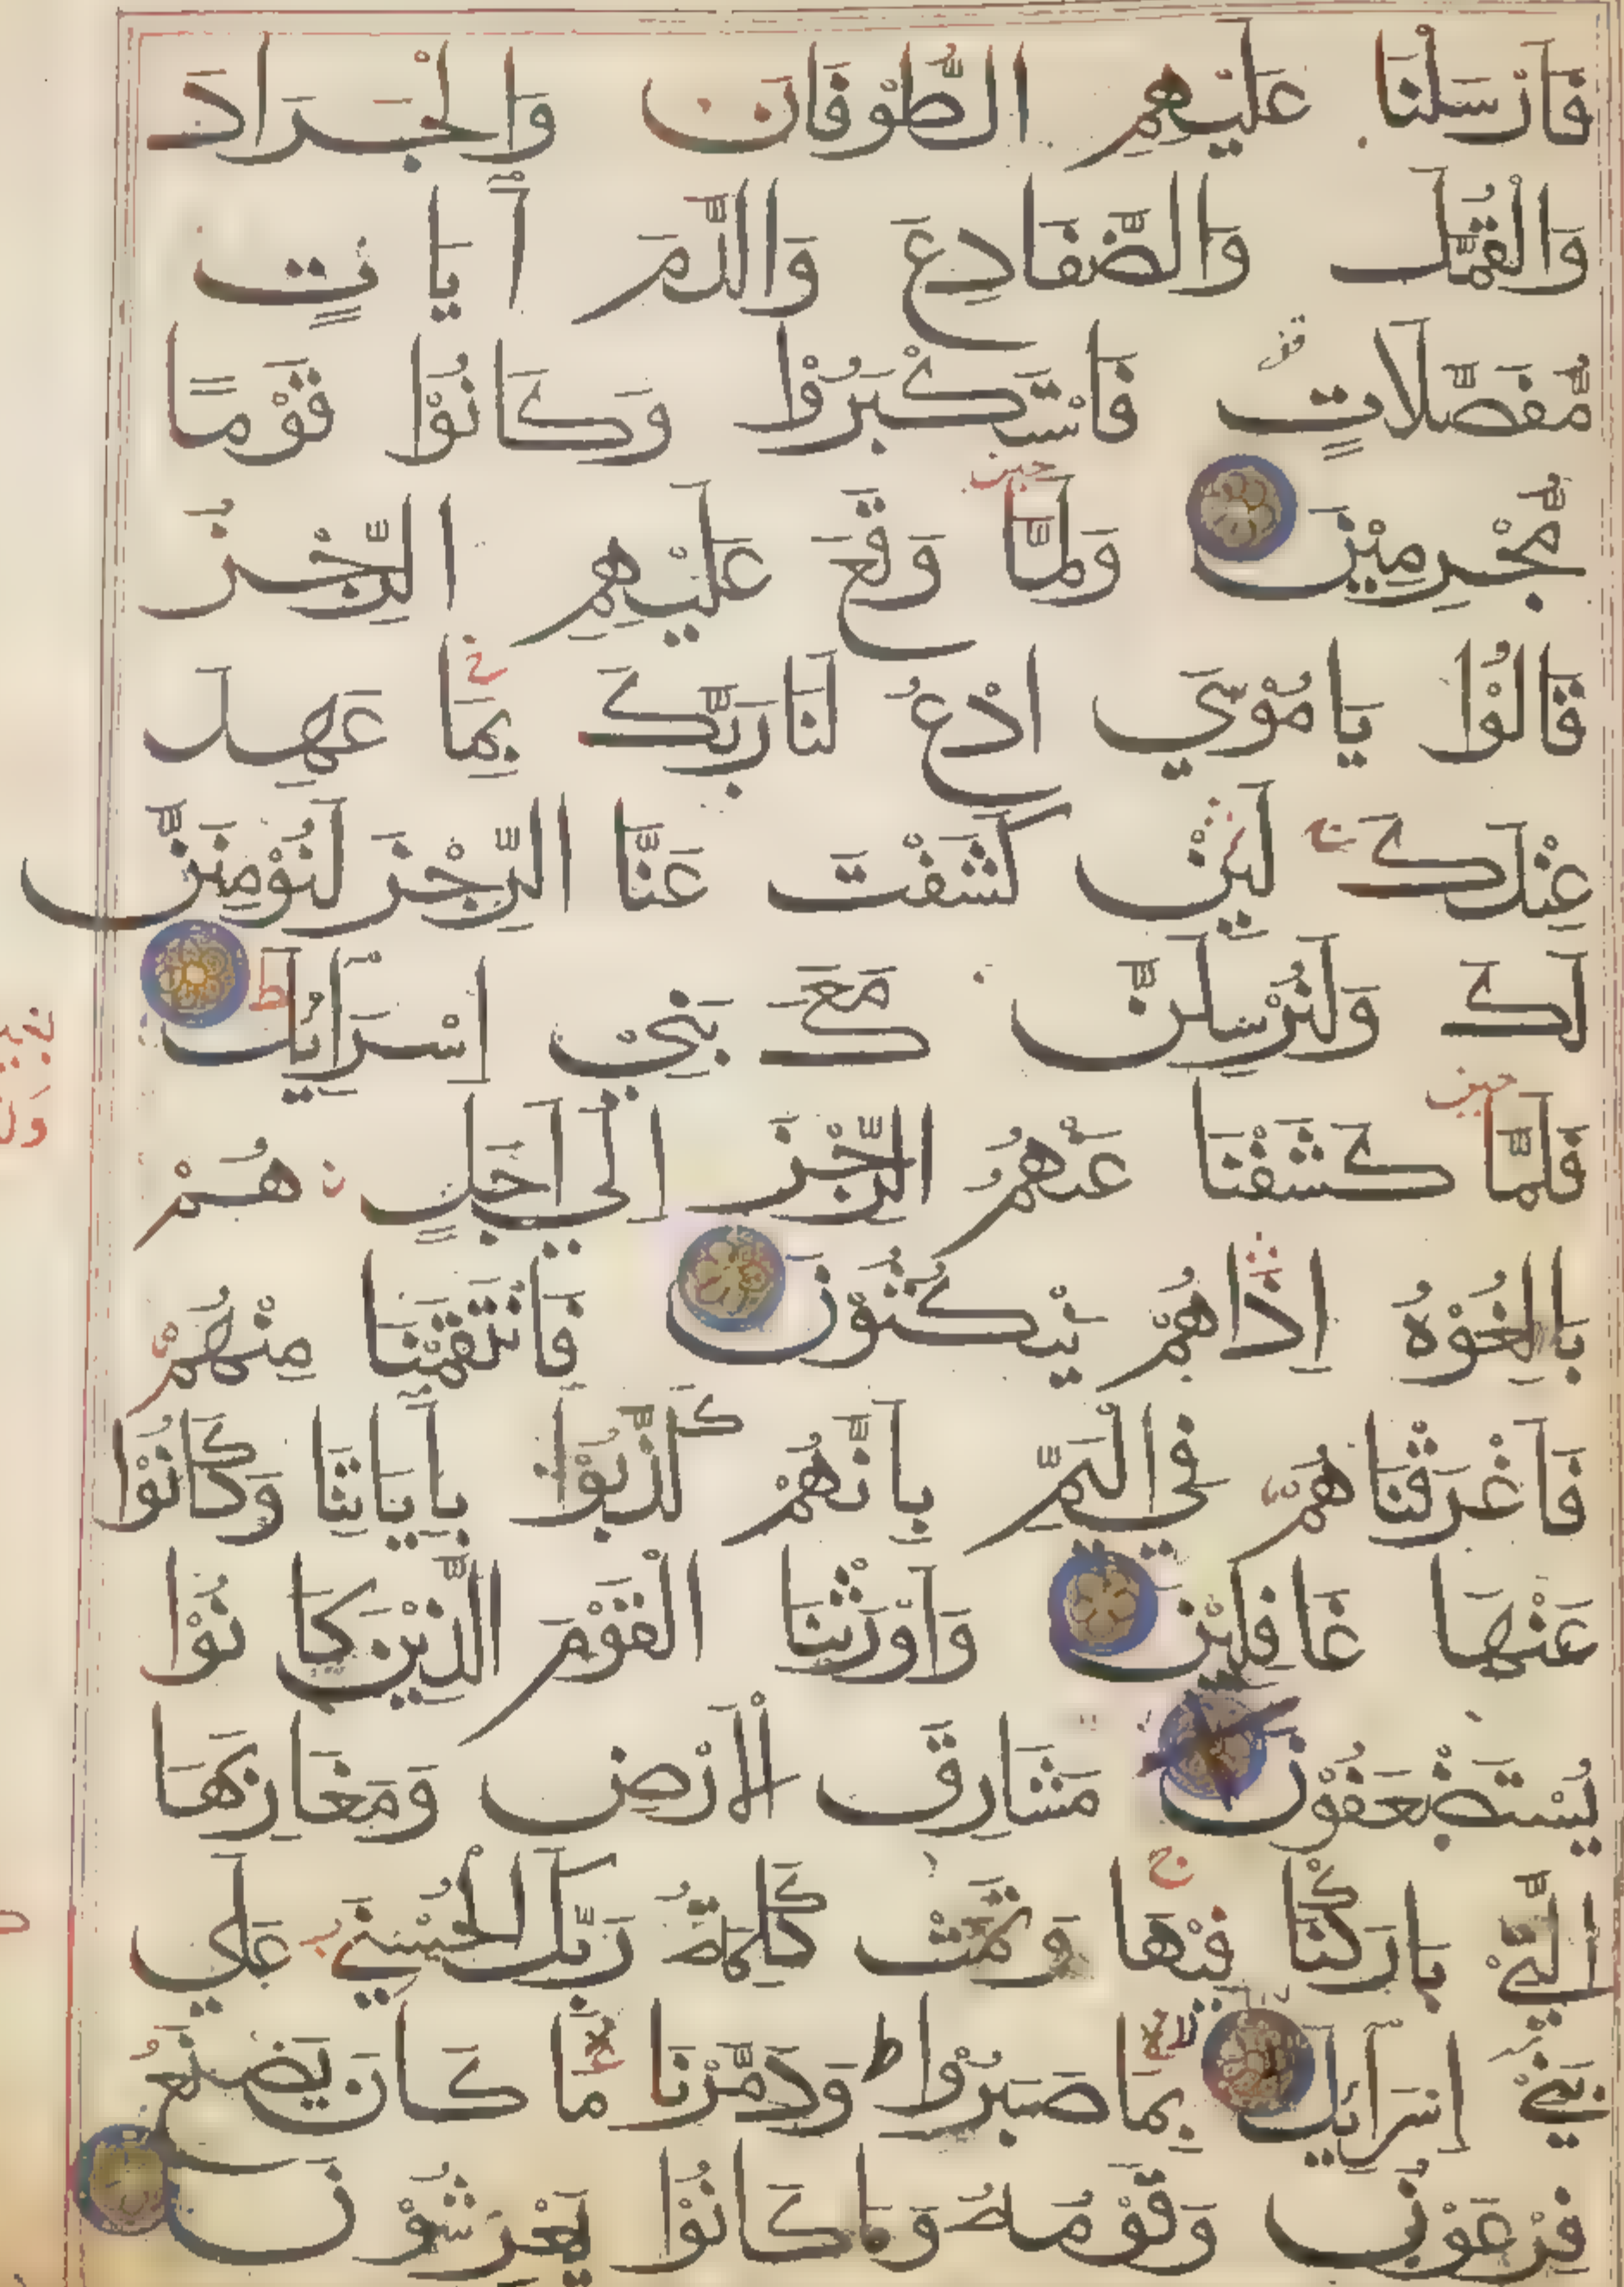 فَأَرْسَلْنَا عَلَيْهِمُ الطُّوْفَانَ وَالْجَرَادَ
وَالْقُمَّلَ وَالضَّفَادِعَ وَالدَّمَ اٰيَاتٍ
مُّفَصَّلَاتٍ قف فَاسْتَكْبَرُوْا وَكَانُوْا قَوْمًا
مُّجْرِمِيْنَ وَلَمَّا وَقَعَ عَلَيْهِمُ الرِّجْزُ
قَالُوْا يَامُوْسَي ادْعُ لَنَا رَبَّكَ بِمَا عَهِدَ
عِنْدَكَ لَئِنْ كَشَفْتَ عَنَّا الرِّجْزَ لَنُؤْمِنَنَّ
لَكَ وَلَنُرْسِلَنَّ مَعَكَ بَنِيْ اِسْرَآئِيْلَ ط
فَلَمَّا كَشَفْنَا عَنْهُمُ الرِّجْزَ اِلَي اَجَلٍ هُمْ
بَالِغُوْهُ اِذَا هُمْ يَنْكُثُوْنَ فَانْتَقَمْنَا مِنْهُمْ
فَاَغْرَقْنَاهُمْ فِي الْيَمِّ بِاَنَّهُمْ كَذَّبُوْا بِاٰيَاتِنَا وَكَانُوْا
عَنْهَا غَافِلِيْنَ وَاَوْرَثْنَا الْقَوْمَ الَّذِيْنَ كَانُوْا
يُسْتَضْعَفُوْنَ مَشَارِقَ الْاَرْضِ وَمَغَارِبَهَا
الَّتِيْ بَارَكْنَا فِيْهَا وَتَمَّتْ كَلِمَةُ رَبِّكَ الْحُسْنَي عَلَي
بَنِيْ اِسْرَآئِيْلَ بِمَا صَبَرُوْا ط وَدَمَّرْنَا مَا كَانَ يَصْنَعُ
فِرْعَوْنُ وَقَوْمُهُ وَمَا كَانُوْا يَعْرِشُوْنَ